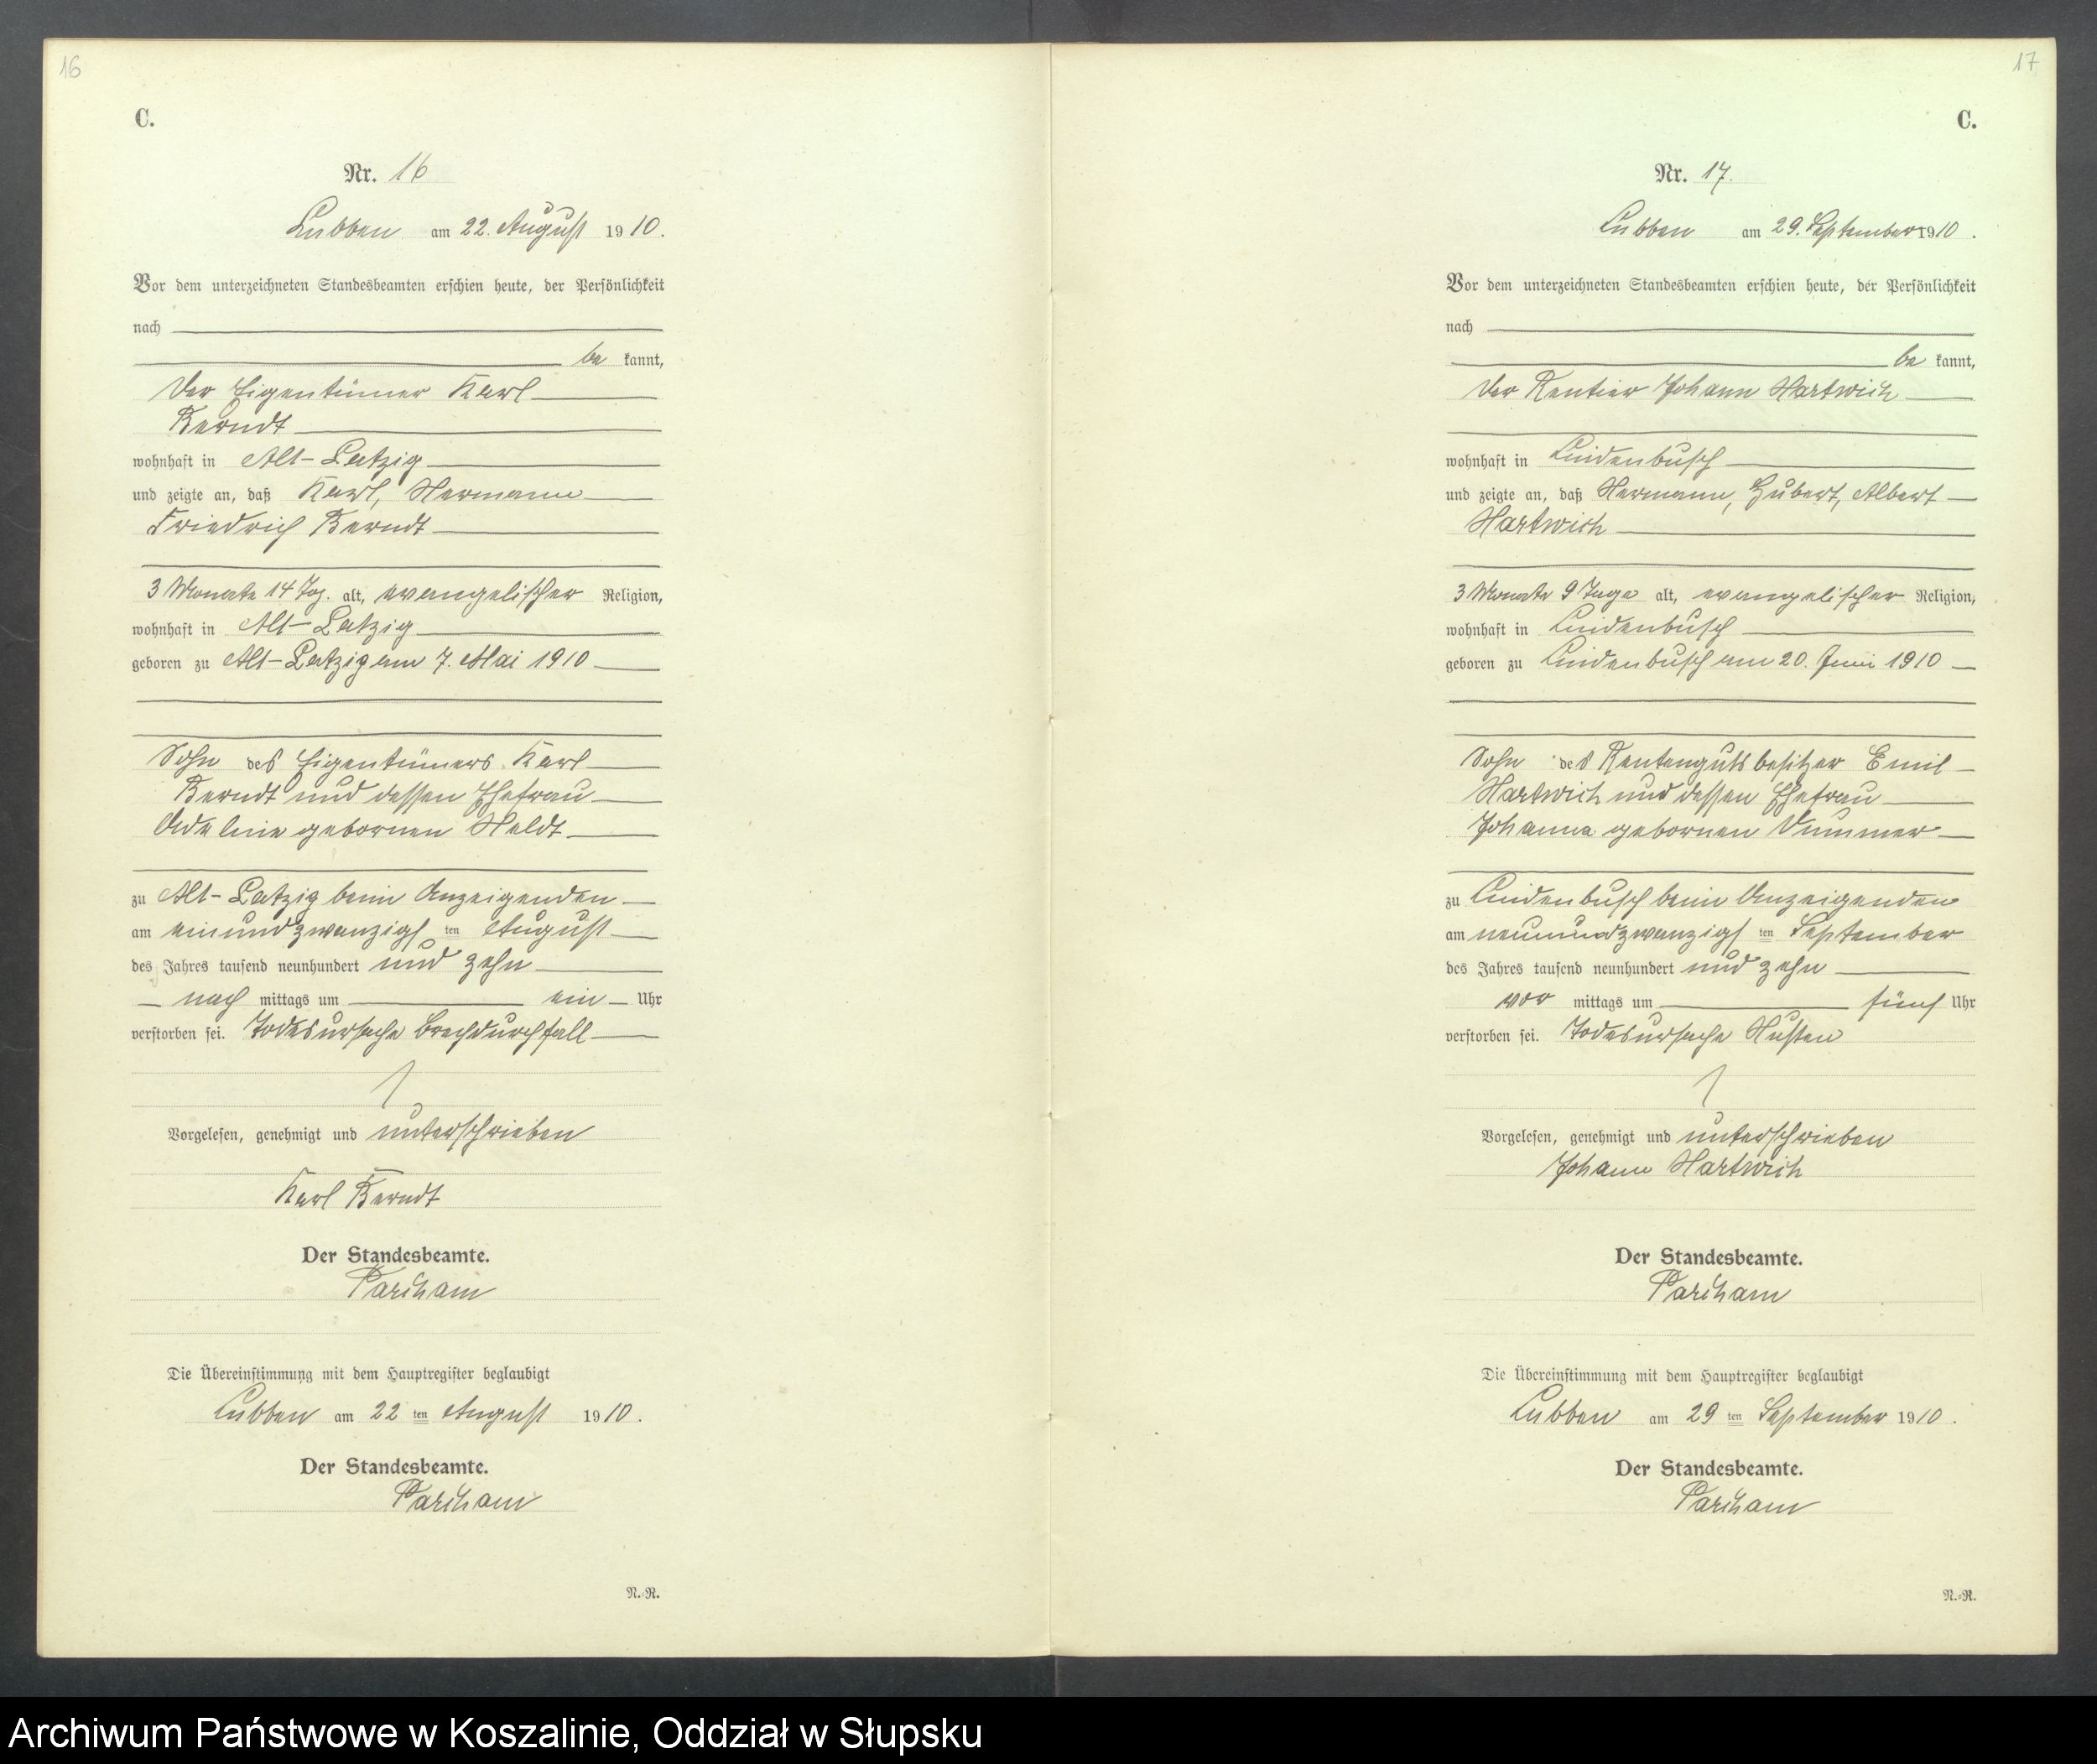 16
C.
Nr. 16
Lubben am 22. August 1910.
Vor dem unterzeichneten Standesbeamten erschien heute, der Persönlichkeit
nach
be kannt,
der Eigentümer Karl
Berndt
wohnhaft in Alt-Latzig
und zeigte an, daß Karl, Hermann
Friedrich Berndt
3 Monate 14 Tag. alt, evangelischer Religion,
wohnhaft in Alt-Latzig
geboren zu Alt-Latzig am 7. Mai 1910
Sohn des Eigentümers Karl
Berndt und dessen Ehefrau
Adeline gebornen Heldt
zu Alt-Latzig beim Anzeigenden
am einundzwanzigsten August
des Jahres tausend neunhundert und zehn
nach mittags um ein Uhr
verstorben sei. Todesursache Brechdurchfall
Vorgelesen, genehmigt und unterschrieben
Karl Berndt
Der Standesbeamte.
Parcham
Die Übereinstimmung mit dem Hauptregister beglaubigt
Lubben am 22 ten August 1910.
Der Standesbeamte.
Parcham
N.-R.
17
C.
Nr. 17.
Lubben am 29. September 1910.
Vor dem unterzeichneten Standesbeamten erschien heute, der Persönlichkeit
nach
be kannt,
der Rentier Johann Hartwich
wohnhaft in Lindenbusch
und zeigte an, daß Hermann, Hubert, Albert
Hartwich
3 Monate 9 Tage alt, evangelischer Religion,
wohnhaft in Lindenbusch
geboren zu Lindenbusch am 20. Juni 1910
Sohn des Rentengutsbesitzer Emil
Hartwich und dessen Ehefrau
Johanna gebornen Dummer
zu Lindenbusch beim Anzeigenden
am neunundzwanzigsten September
des Jahres tausend neunhundert und zehn
vor mittags um fünf Uhr
verstorben sei. Todesursache Husten
Vorgelesen, genehmigt und unterschrieben
Johann Hartwich
Der Standesbeamte.
Parcham
Die Übereinstimmung mit dem Hauptregister beglaubigt
Lubben am 29 ten September 1910.
Der Standesbeamte.
Parcham
N.-R.
Archiwum Państwowe w Koszalinie, Oddział w Słupsku